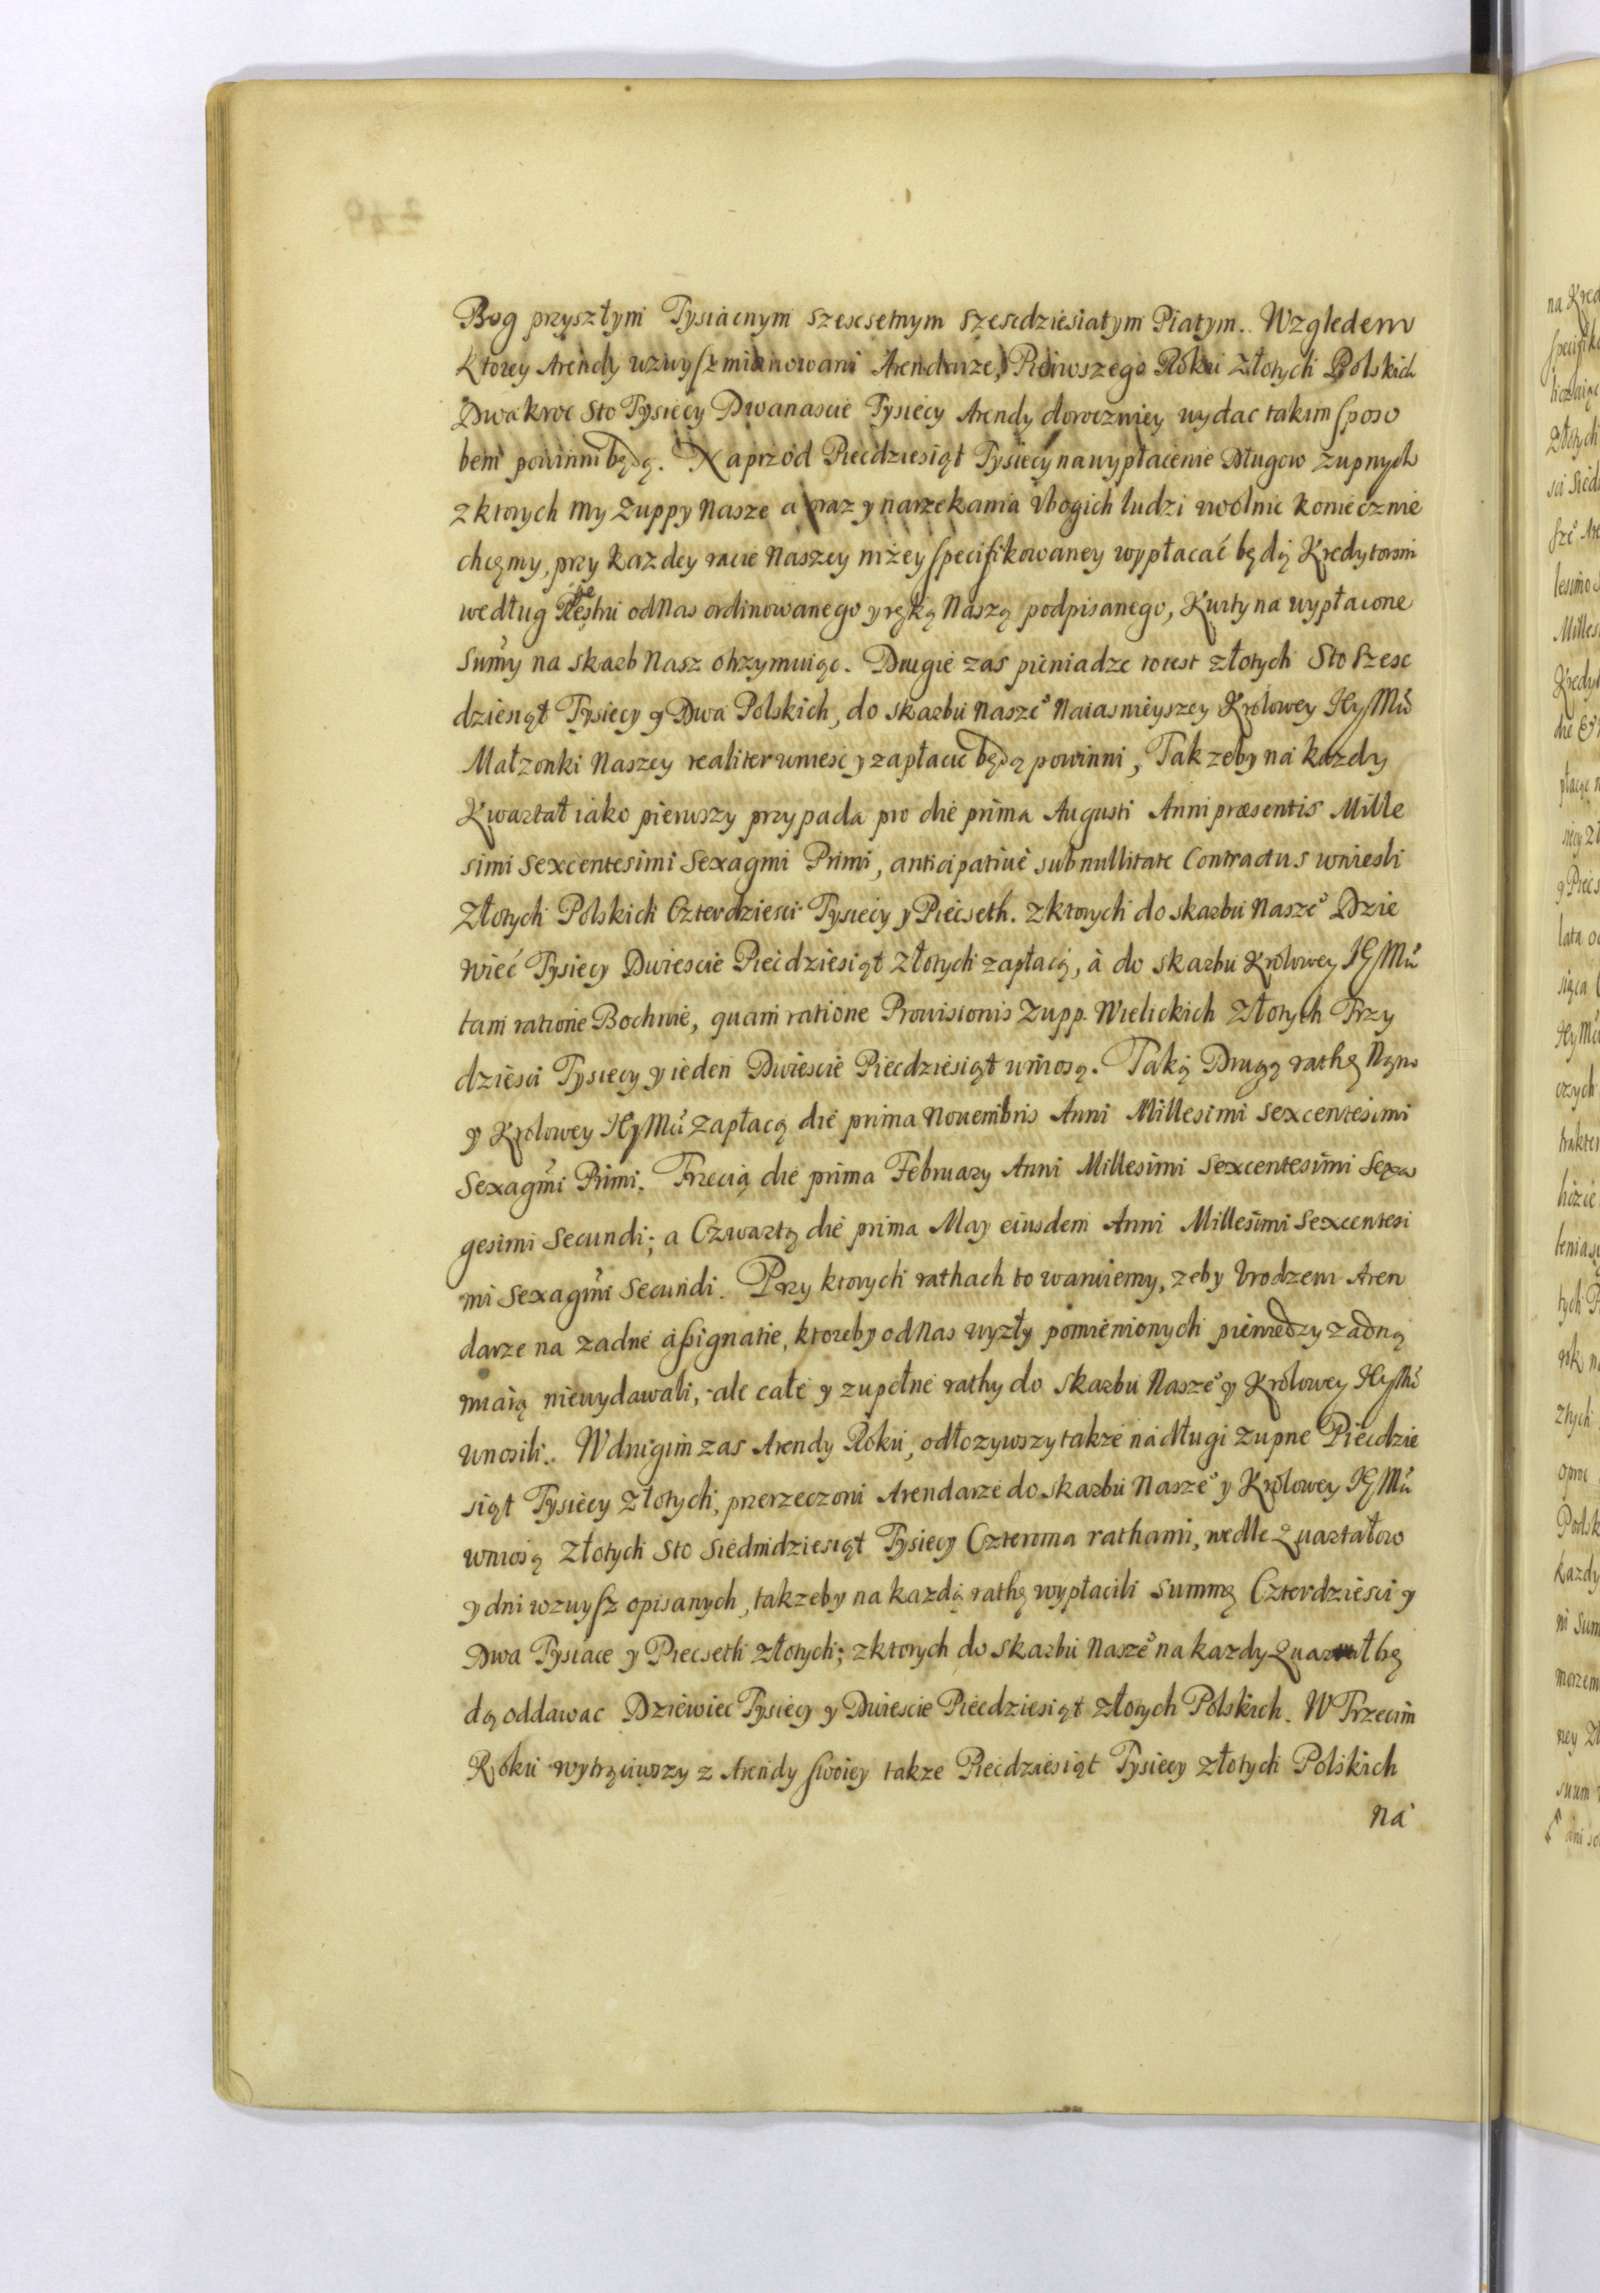 Bog przyszłym Tysiącnym szescsetnym szescdziesiatym Piatym. Względem
ktorey Arendy wzwysz mianowani Arendarze, Pierwszego Roku Złotych Polskich
Dwakroc Sto Tysięcy Dwanascie Tysięcy Arendy doroczniey wydac takim sposo
bem powinni będą. Naprzod Piecdziesiąt Tysięcy na wypłacenie Długow Zupnych
z ktorych My Zuppy Nasze a oraz y narzekania Vbogich ludzi uwolnic koniecznie
chcemy, przy kazdey racie Naszey niżey specifikowaney wypłacać będą Kredytorom
według Reiestru od Nas ordinowanego y ręką Naszą podpisanego, Kwity na wypłacone
Sumy na skarb Nasz otrzymuiąc. Drugie zas pieniadze to iest złotych Sto Szesc
dziesiąt Tysiecy y Dwa Polskich, do skarbu Nasze° Naiasnieyszey Krolowey Jey Mci
Małzonki Naszey realiter wniesc y zapłacic będą powinni, Tak zeby na kazdy
Kwartał iako pierwszy przypada pro die prima Augusti Anni præsentis Mille
simi Sexcentesimi Sexagmi Primi, anticipatiue sub nullitate Contractus wniesli
Złotych Polskich Czterdziesci Tysięcy y Piecseth. z ktorych do skarbu Nasze° Dzie
więć Tysięcy Dwiescie Piecdziesiąt Złotych zapłacą, à do skarbu Krolowey Jey Mci
tam ratione Bochnie, quam ratione Prouisionis Zupp. Wielickich Złotych Trzy
dziesci Tysięcy y ieden Dwiescie Piecdziesiąt wniosą. Taką Drugą rathę Nam
y Krolowey Jey Mci zapłacą die prima Nouembris Anni Millesimi Sexcentesimi
Sexagmi Primi. Trzecią die prima February Anni Millesimi Sexcentesimi Sexa
gesimi Secundi; a Czwartą die prima May eiusdem Anni Millesimi Sexcentesi
mi Sexagmi Secundi. Przy ktorych rathach to waruiemy, zeby Vrodzeni Aren
darze na zadne assignatie, ktoreby od Nas wyzły pomienionych pieniedzy zadną
miarą niewydawali, ale całe y zupełne rathy do skarbu Nasze° y Krolowey Jey Mci
wnosili. W drugim zas Arendy Roku, odłozywszy takze na długi zupne Piecdzie
siąt Tysięcy Złotych, przerzeczoni Arendarze do skarbu Nasze° y Krolowey Jey Mci
wniosą Złotych Sto Siedmdziesiąt Tysięcy Czterma rathami, wedle Quartałow
y dni wzwysz opisanych, takzeby na kazdą rathę wypłacili Summę Czterdziesci y
Dwa Tysiące y Piecseth Złotych; z ktorych do skarbu Nasze° na kazdy Quartał bę
dą oddawac Dziewiec Tysięcy y Dwiescie Piecdziesiąt Złotych Polskich. W Trzecim
Roku wytrąciwszy z Arendy swoiey takze Piecdziesiąt Tysięcy Złotych Polskich
na